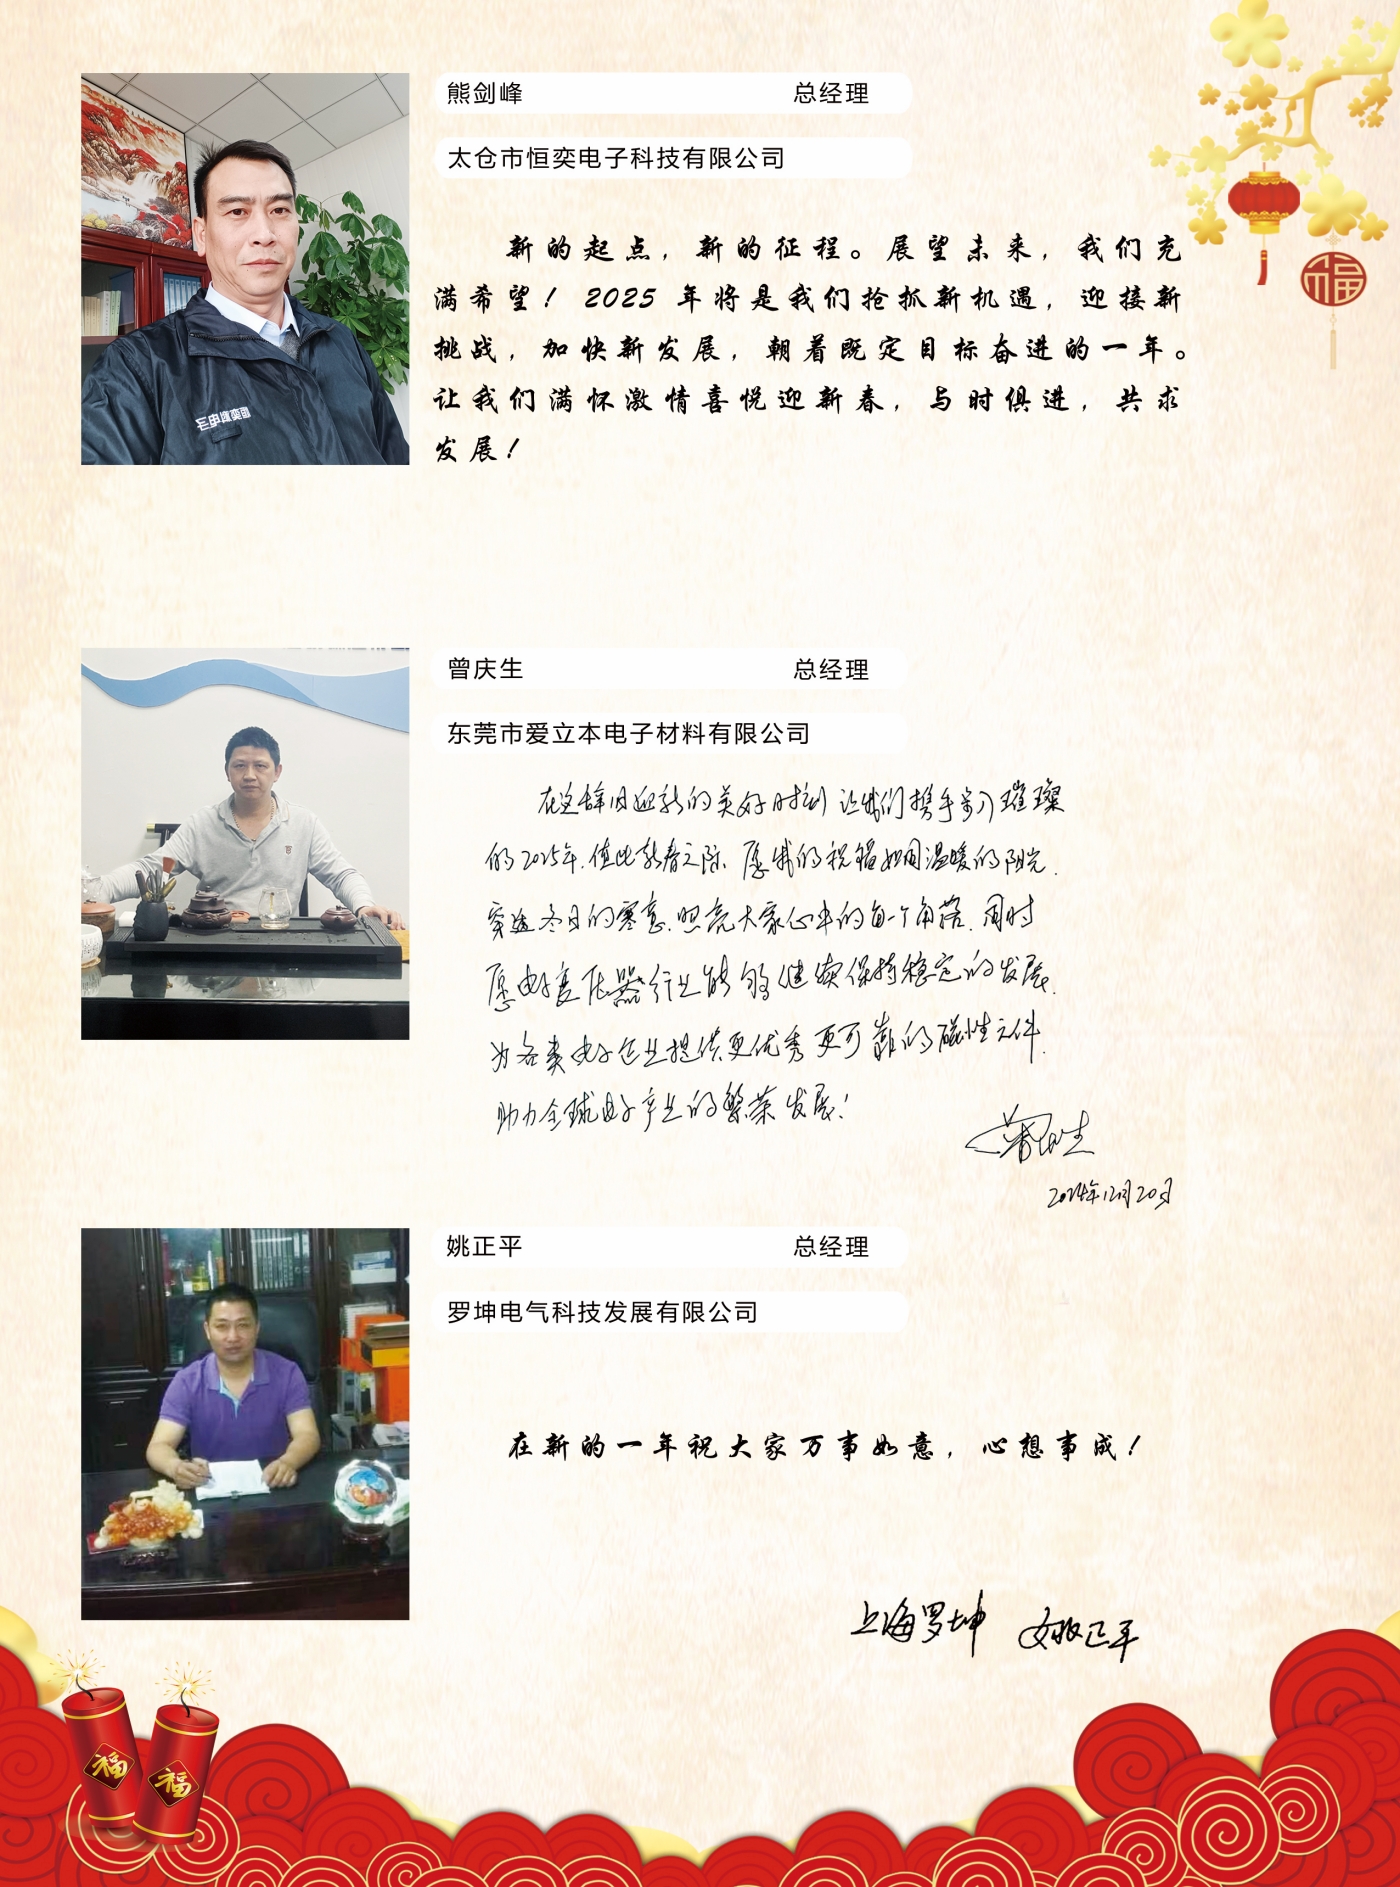 熊剑峰 总经理
太仓市恒奕电子科技有限公司
新的起点，新的征程。展望未来，我们充
满希望！2025 年将是我们抢抓新机遇，迎接新
挑战，加快新发展，朝着既定目标奋进的一年。
让我们满怀激情喜悦迎新春，与时俱进，共求
发展！
福
曾庆生 总经理
东莞市爱立本电子材料有限公司
在这辞旧迎新的美好时刻 让我们携手步入璀璨
的2025年.值此新春之际.愿我的祝福如同温暖的阳光.
穿透冬日的寒意.照亮大家心中的每一个角落.同时
愿电子变压器行业能够继续保持稳定的发展.
为各类电子企业提供更优秀更可靠的磁性元件.
助力全球电子产业的繁荣发展！
曾庆生
2024年12月20日
姚正平 总经理
罗坤电气科技发展有限公司
在新的一年祝大家万事如意，心想事成！
上海罗坤 姚正平
福
福